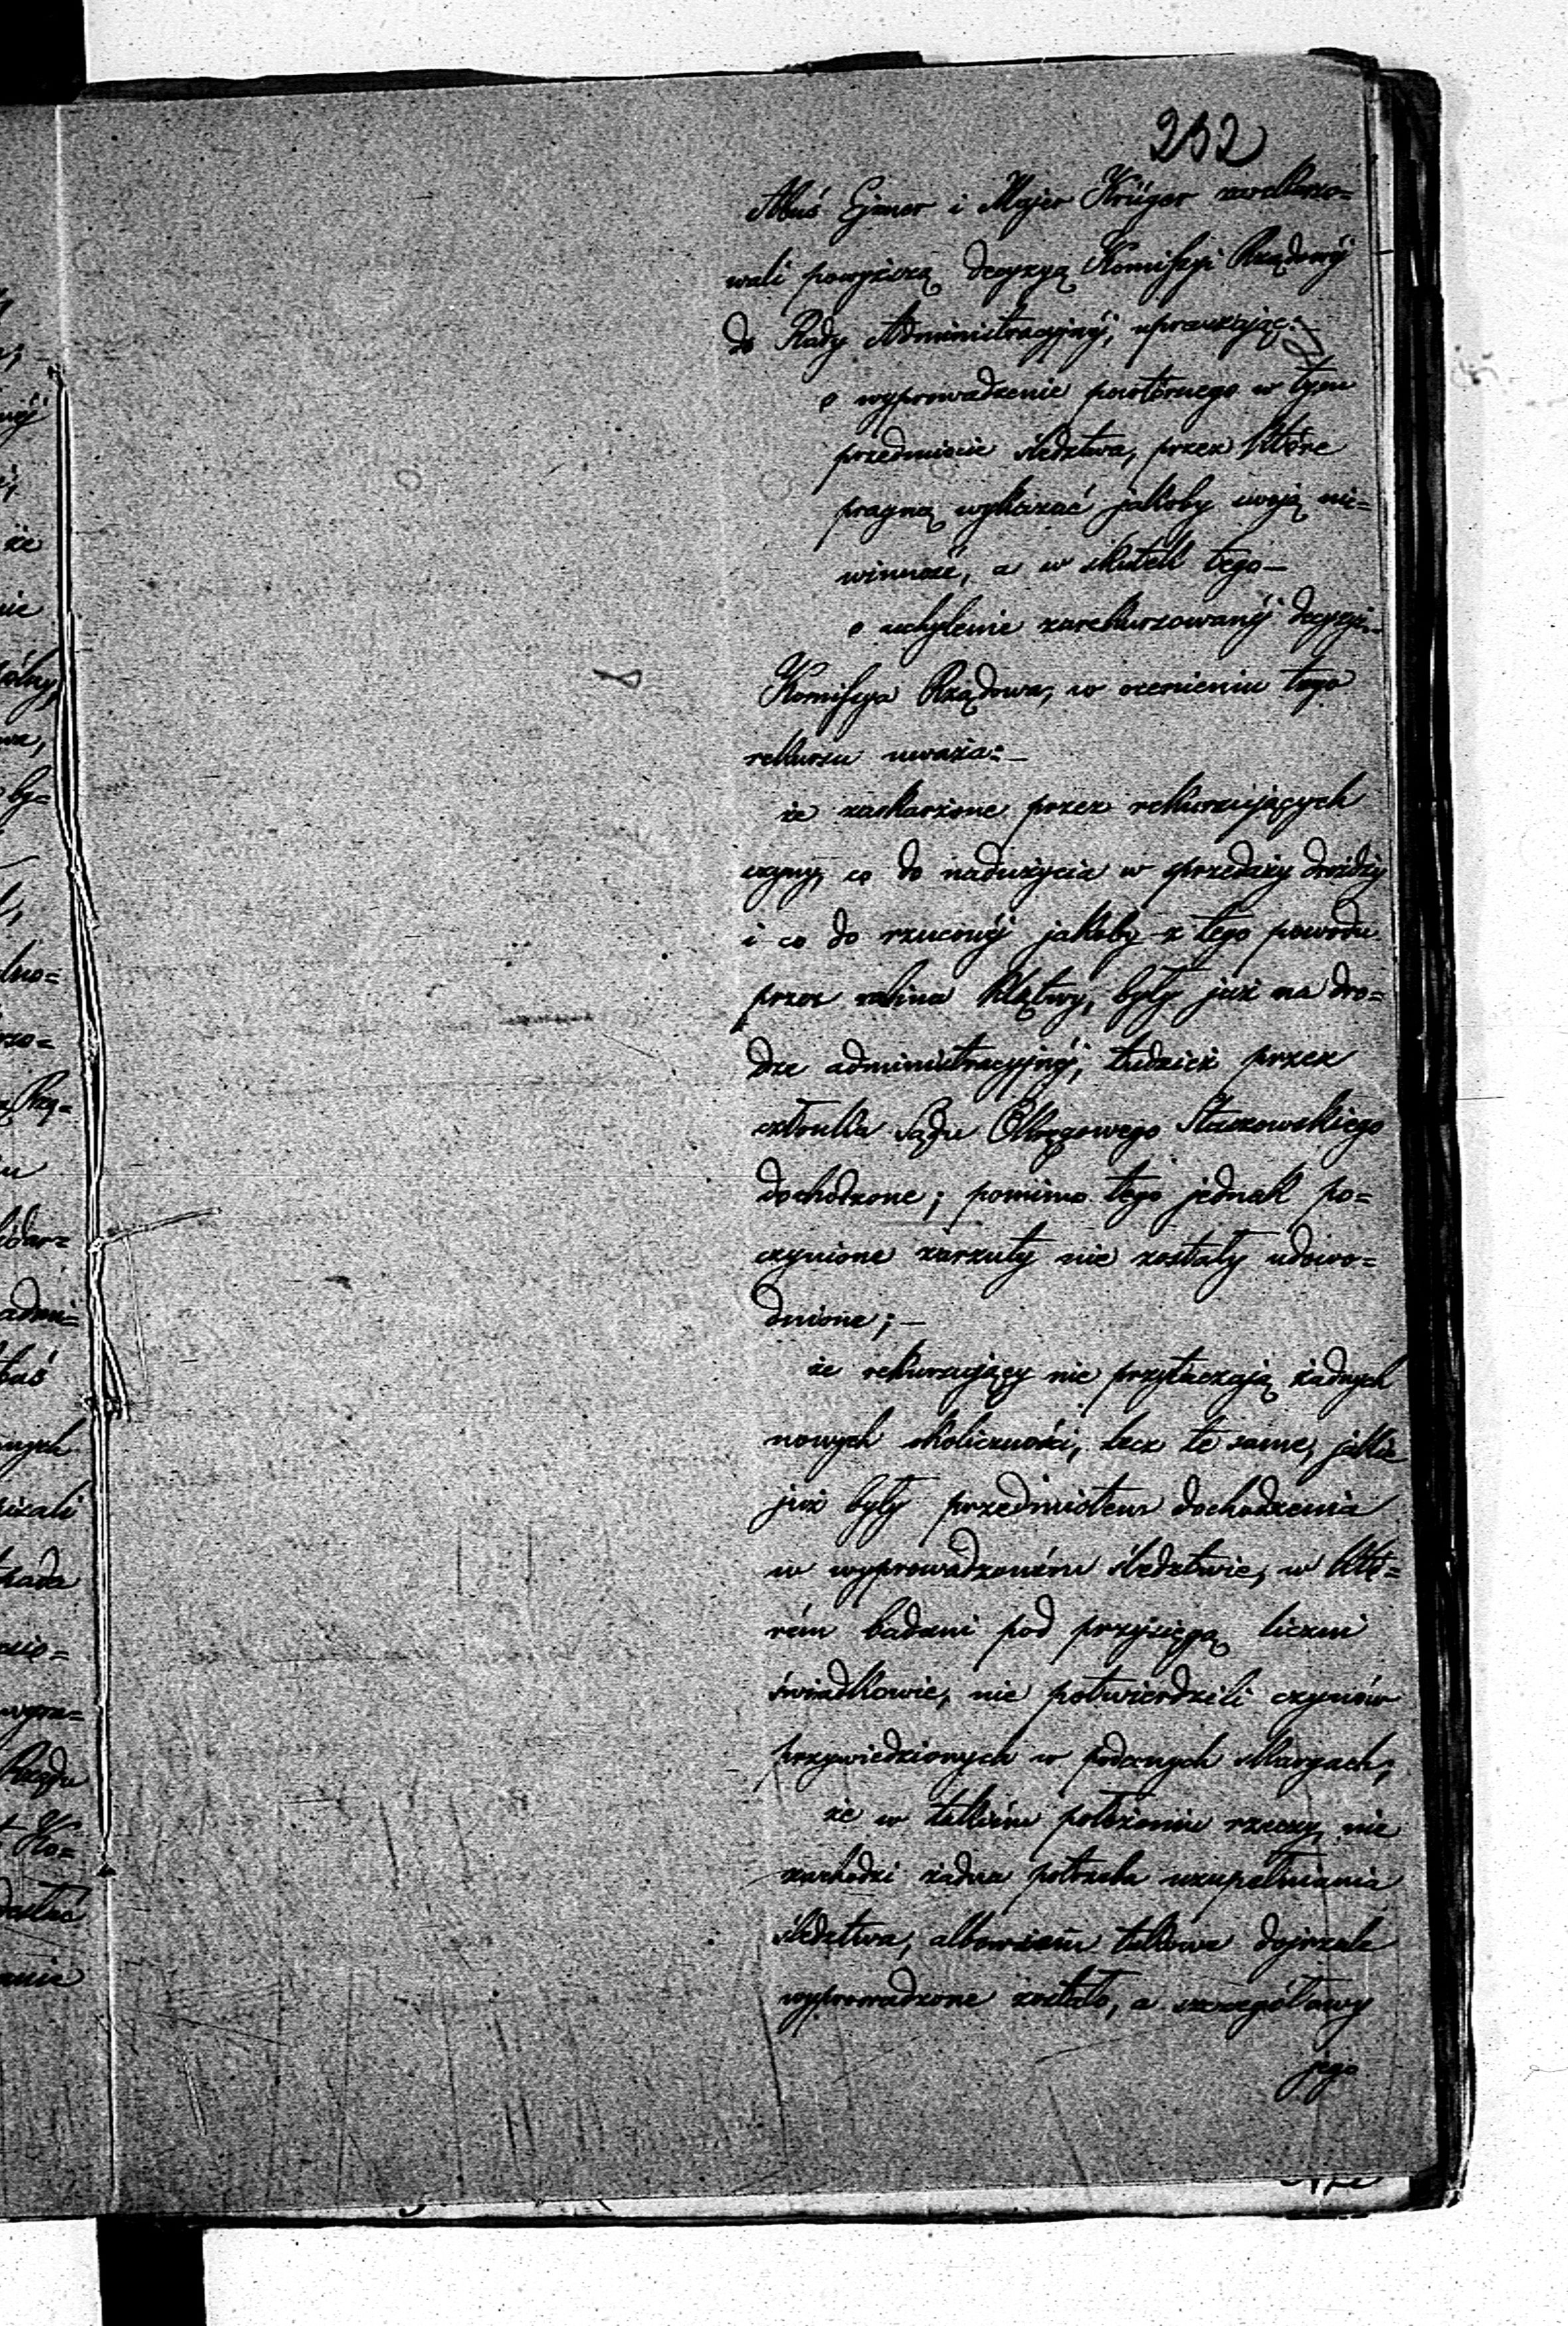 232
Abuś Ejzner i Majer Krüger zarekurso=
wali powyższą decyzyą Komissyi Rządowéj
do Rady Administracyjnéj, upraszając:—
o wyprowadzenie powtórnego w tym
przedmiocie śledztwa, przez które
pragną wykazać jakoby swoją nie=
winność, a w skutek tego—
o uchylenie zarekursowanéj decyzyi.—
Komissya Rządowa, w ocenieniu tego
rekursu uważa:—
że zaskarżone przez rekursujących
czyny, co do nadużycia w sprzedaży drożdży
i co do rzuconéj jakoby z tego powodu
przez rabina klątwy, były już na dro=
dze administracyjnéj, tudzież przez
członka Sądu Okręgowego Staszowskiego
dochodzone; pomimo tego jednak po=
czynione zarzuty nie zostały udowo=
dnione;—
że rekursujący nie przytaczają żadnych
nowych okoliczności, lecz te same, jakie
już były przedmiotem dochodzenia
w wyprowadzoném śledztwie, w któ=
rém badani pod przysięgą liczni
świadkowie, nie potwierdzili czynów
przywiedzionych w podanych skargach;
że w takiém położeniu rzeczy, nie
zachodzi żadna potrzeba uzupełniania
śledztwa, albowiem takowe dojrzale
wyprowadzone zostało, a szczegółowy
jego